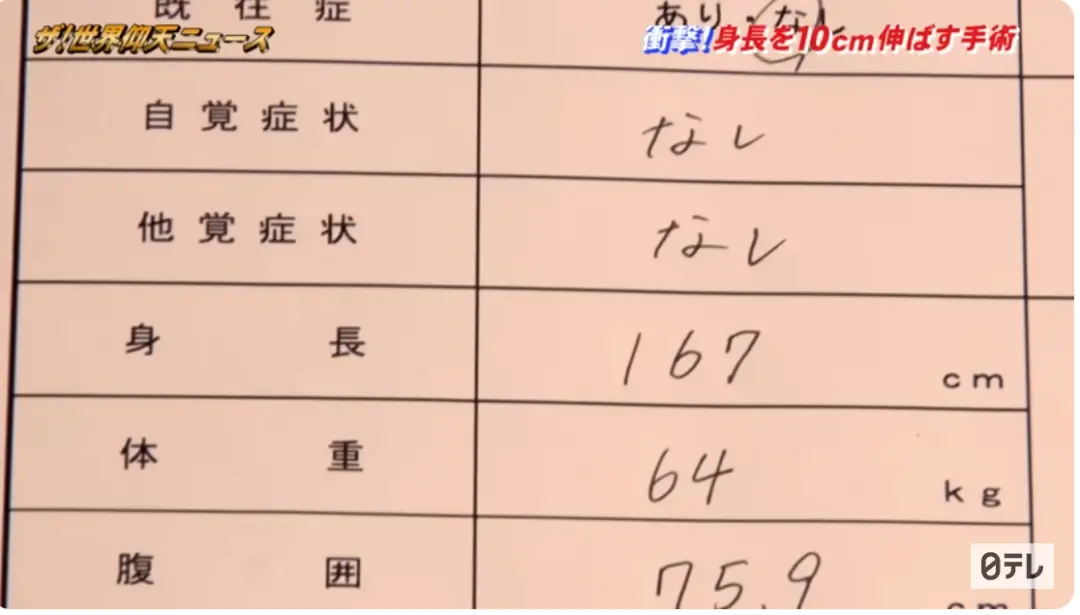 既往症 あり・なし
ザ!世界仰天ニュース 衝撃!身長を10cm伸ばす手術
自覚症状 なし
他覚症状 なし
身長 167 cm
体重 64 kg
腹囲 75.9 cm
日テレ